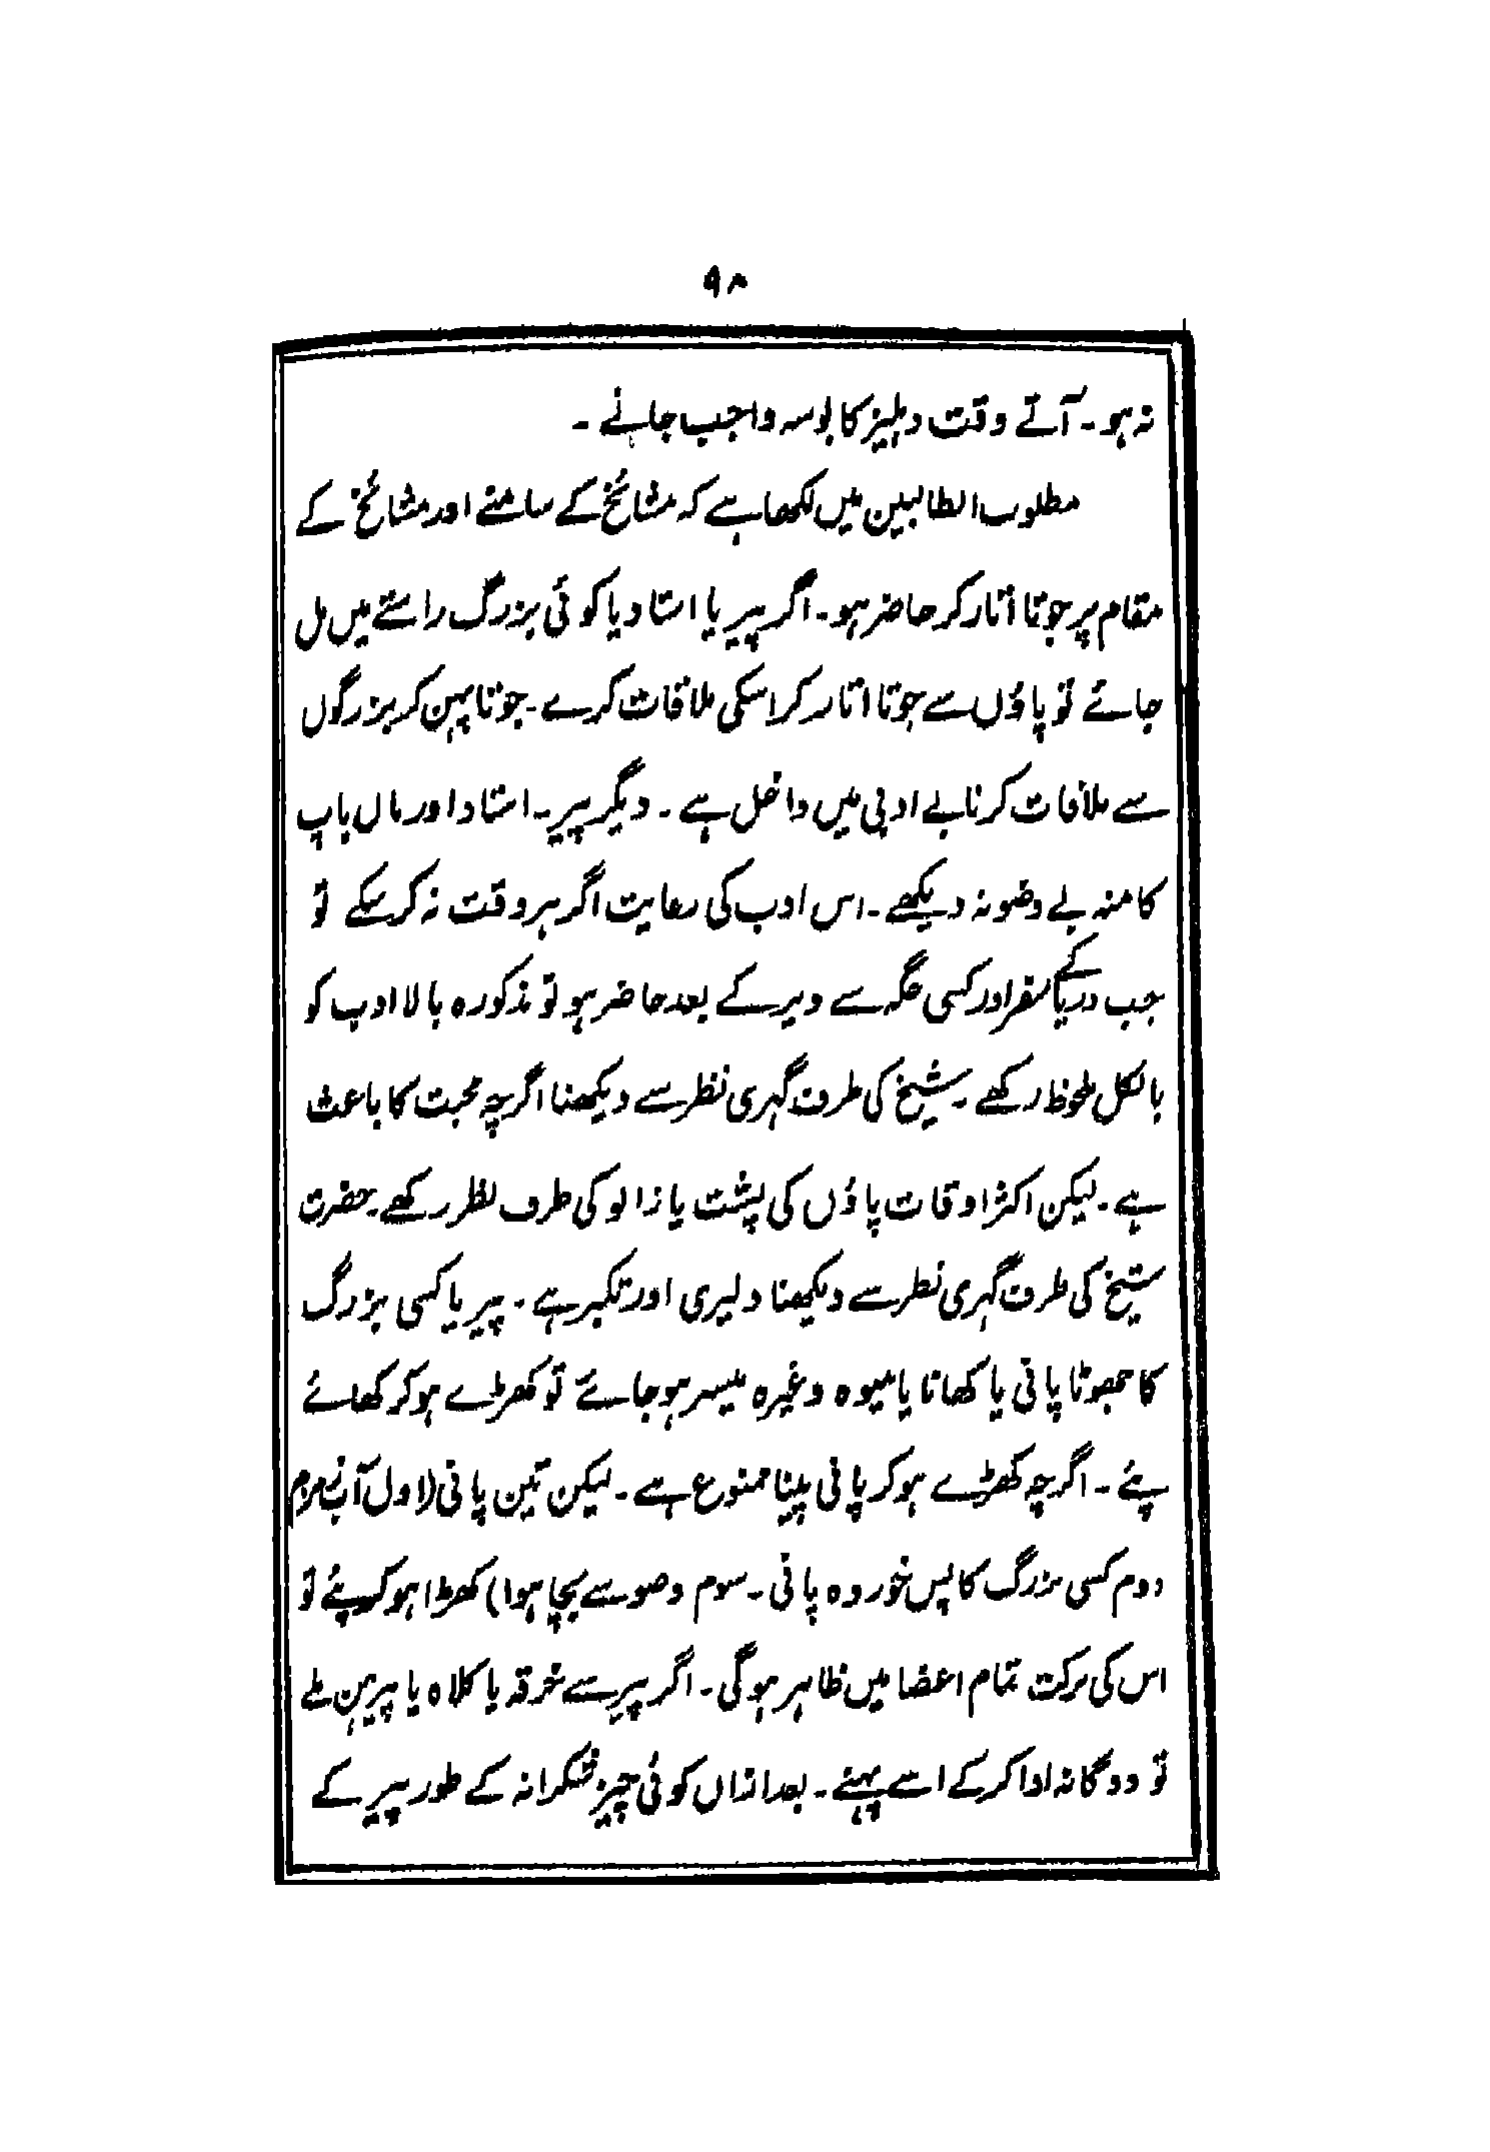 ۹۸
نہ ہو۔ آتے وقت دہلیز کا بوسہ واجب جانے ۔
مطلوب الطالبین میں لکھا ہے کہ مشائخ کے سامنے اور مشائخ کے
مقام پر جوتا اُتار کر حاضر ہو۔ اگر پیر یا استاد یا کوئی بزرگ راستے میں مل
جائے تو پاؤں سے جوتا اتار کر اسکی ملاقات کرے ۔ جوتا پہن کر بزرگوں
سے ملاقات کرنا بے ادبی میں داخل ہے ۔ دیگر پیر۔ استاد اور ماں باپ
کا منہ بے وضو نہ دیکھے ۔ اس ادب کی رعایت اگر ہر وقت نہ کر سکے تو
جب دریا کے سفر اور کسی جگہ سے دیر کے بعد حاضر ہو تو مذکورہ بالا ادب کو
بالکل ملحوظ رکھے ۔ شیخ کی طرف گہری نظر سے دیکھنا اگرچہ محبت کا باعث
ہے ۔ لیکن اکثر اوقات پاؤں کی پشت یا زانو کی طرف نظر رکھے ۔ حضرت
شیخ کی طرف گہری نظر سے دیکھنا دلیری اور تکبر ہے ۔ پیر یا کسی بزرگ
کا جھوٹا پانی یا کھانا یا میوہ وغیرہ میسر ہو جائے تو کھڑے ہو کر کھائے
پئے ۔ اگرچہ کھڑے ہو کر پانی پینا ممنوع ہے ۔ لیکن تین پانی (اول آب زمزم
دوم کسی بزرگ کا پس خوردہ پانی ۔ سوم وضو سے بچا ہوا) کھڑا ہو کر پئے تو
اس کی برکت تمام اعضا میں ظاہر ہو گی ۔ اگر پیر سے خرقہ یا کلاہ یا پیرہن ملے
تو دوگانہ ادا کر کے اسے پہنے ۔ بعد ازاں کوئی چیز شکرانہ کے طور پیر کے